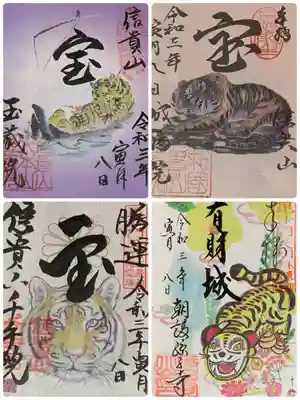 信貴山
宝
令和三年
寅月
八日
玉蔵院
奉拝
宝
令和三年
寅月八日
成福院
信貴山
勝運
宝
令和三年寅月
八日
信貴山千手院
有財城
令和三年
寅月 八日
朝護孫子寺